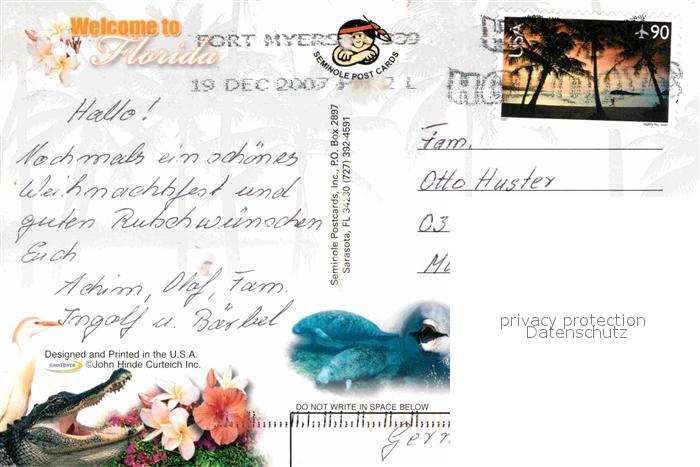 Welcome to
Florida
FORT MYERS
19 DEC 2007
SEMINOLE POST CARDS
USA
90
Hallo!
Nochmals ein schönes
Weihnachtfest und
guten Rutsch wünschen
Euch
Achim, Olaf, Fam.
Ingolf u. Bärbel
Seminole Postcards, Inc., P.O. Box 2897
Sarasota, FL 34230 (727) 392-4591
Fam.
Otto Huster
03
privacy protection
Datenschutz
Designed and Printed in the U.S.A.
JOHN HINDE
©John Hinde Curteich Inc.
DO NOT WRITE IN SPACE BELOW
Germ